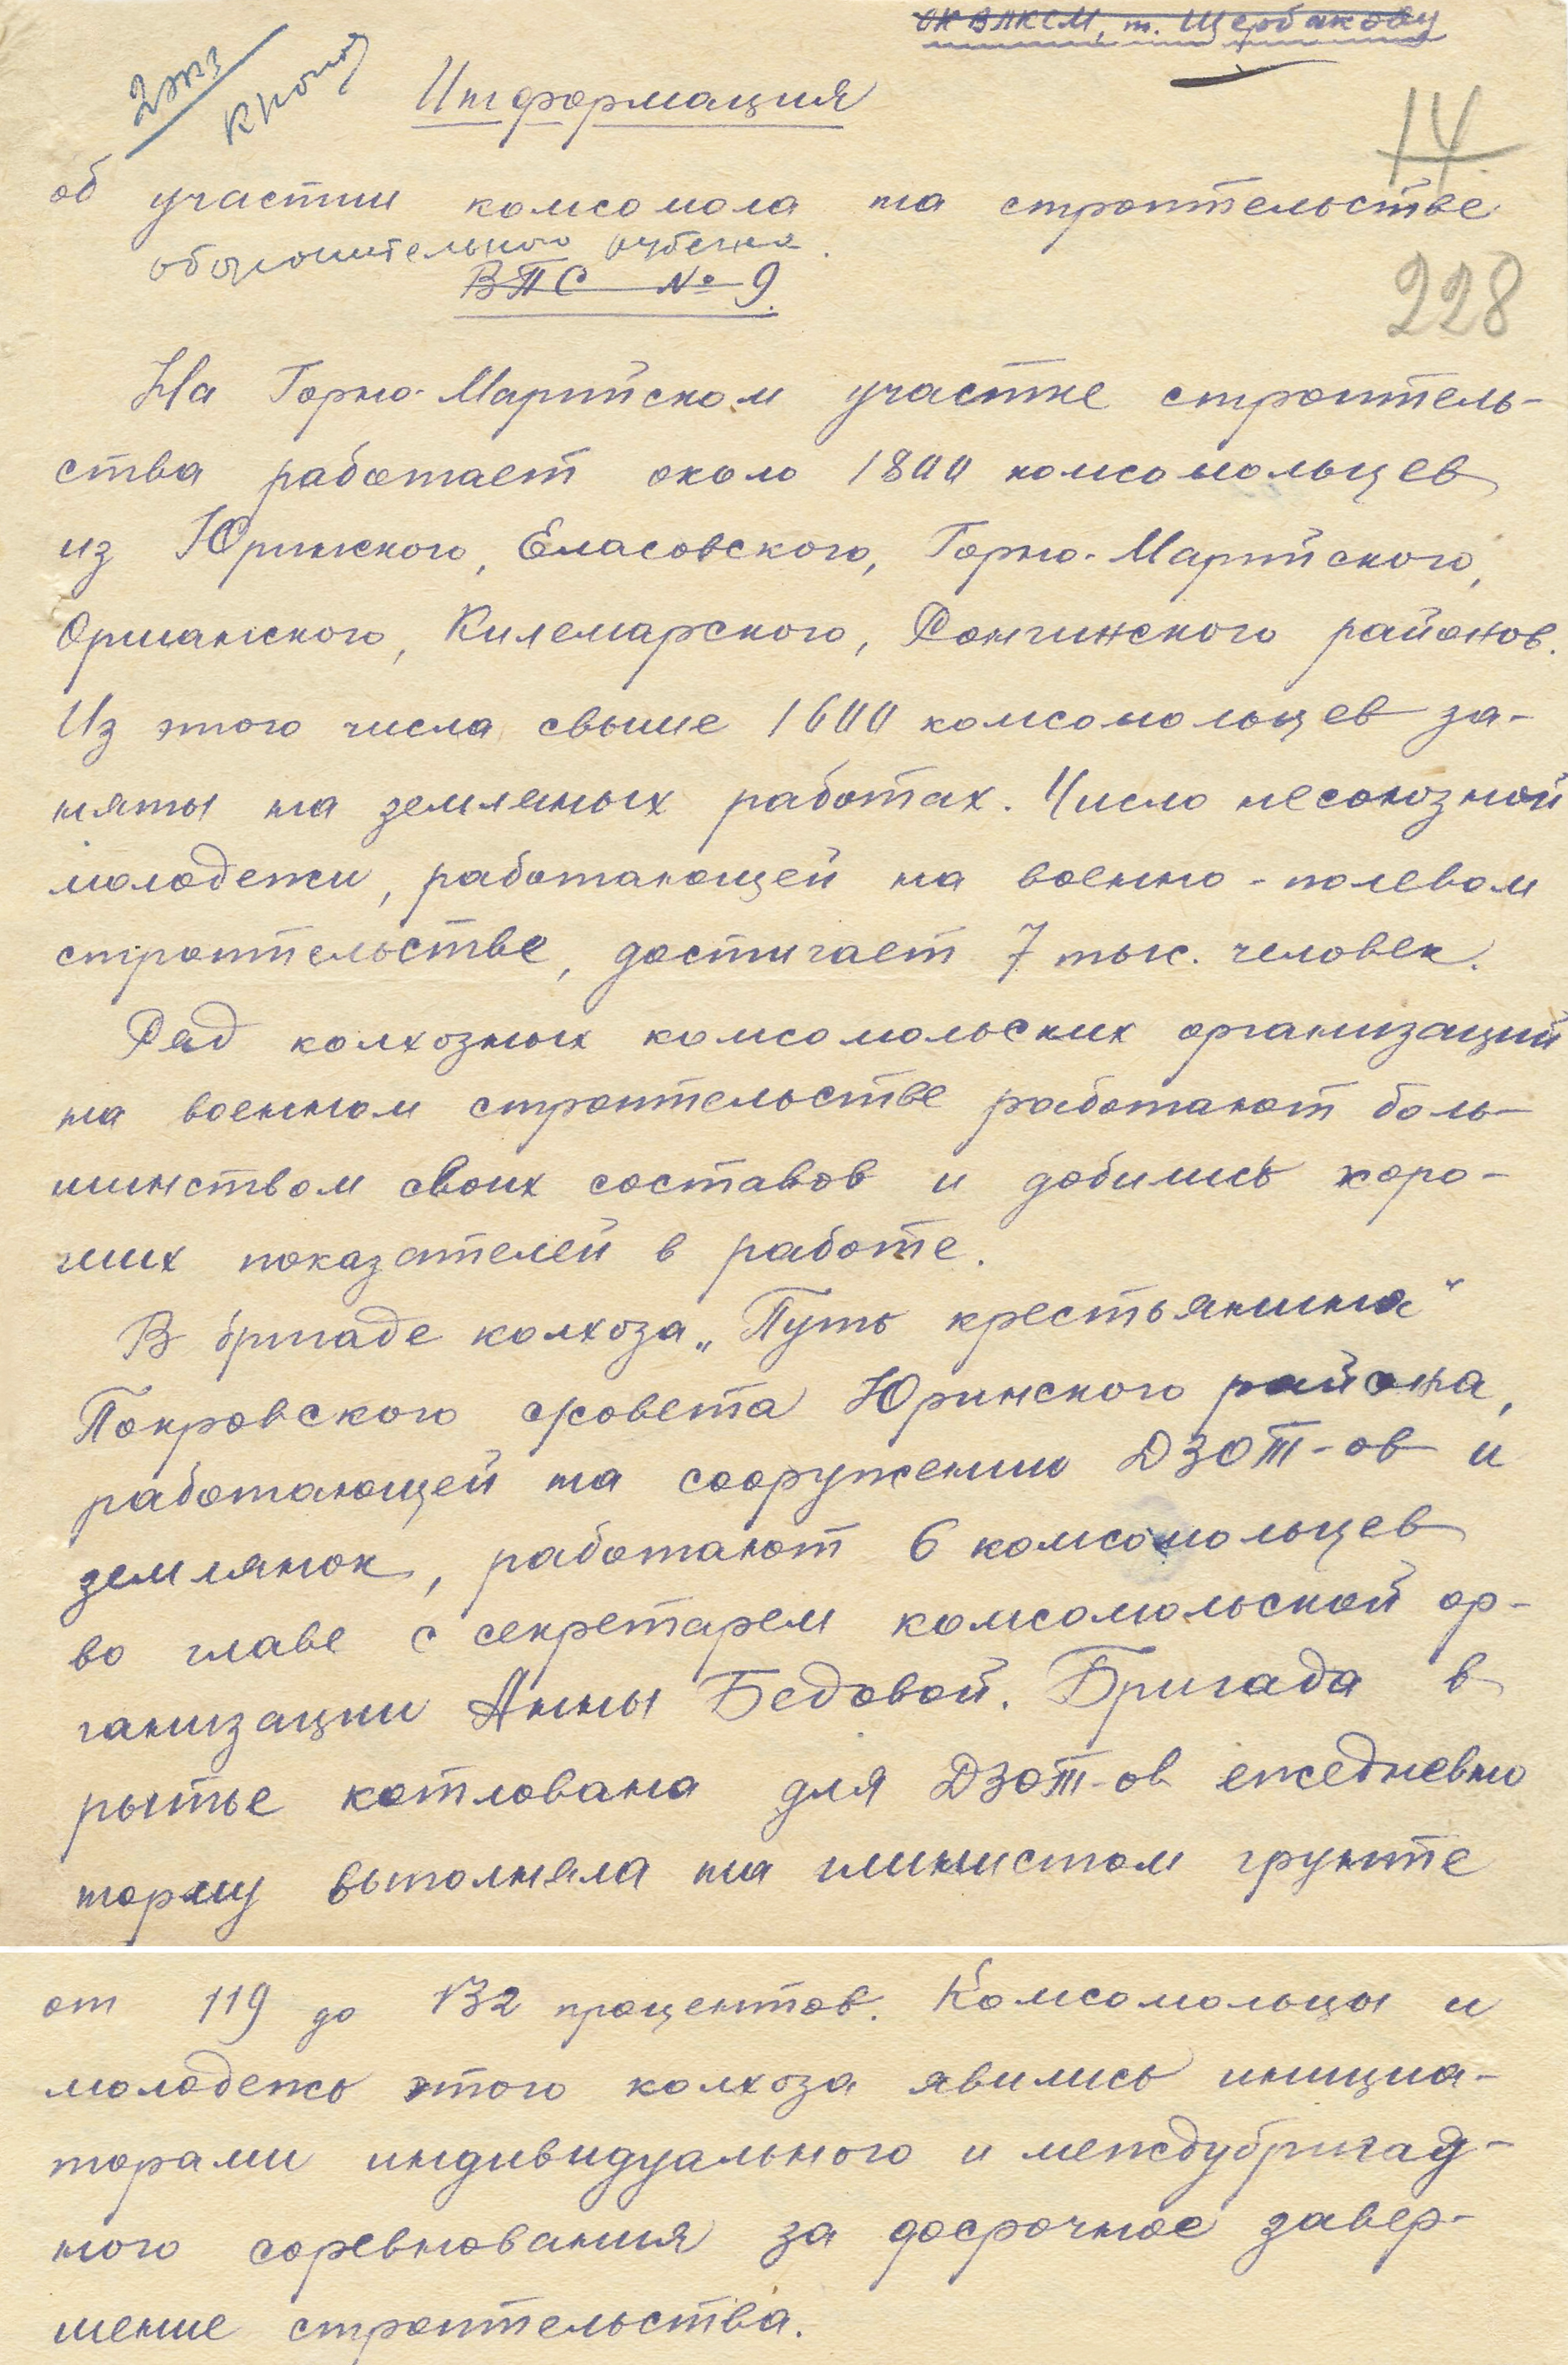 ОК ВЛКСМ, т. Щербакову
2 экз
Информация
14
об участии комсомола на строительстве
оборонительного рубежа.
ВПС № 9.
228
На Горно-Марийском участке строитель-
ства работает около 1800 комсомольцев
из Юринского, Еласовского, Горно-Марийского,
Оршанского, Килемарского, Ронгинского районов.
Из этого числа свыше 1600 комсомольцев за-
няты на земляных работах. Число несоюзной
молодежи, работающей на военно-полевом
строительстве, достигает 7 тыс. человек.
Ряд колхозных комсомольских организаций
на военном строительстве работают боль-
шинством своих составов и добились хоро-
ших показателей в работе.
В бригаде колхоза „Путь крестьянина"
Покровского с/совета Юринского района,
работающей на сооружении ДЗОТ-ов и
землянок, работают 6 комсомольцев
во главе с секретарем комсомольской ор-
ганизации Анны Бедовой. Бригада в
рытье котлована для ДЗОТ-ов ежедневно
норму выполняла на глинистом грунте
от 119 до 132 процентов. Комсомольцы и
молодежь этого колхоза явились инициа-
торами индивидуального и междубригад-
ного соревнования за досрочное завер-
шение строительства.